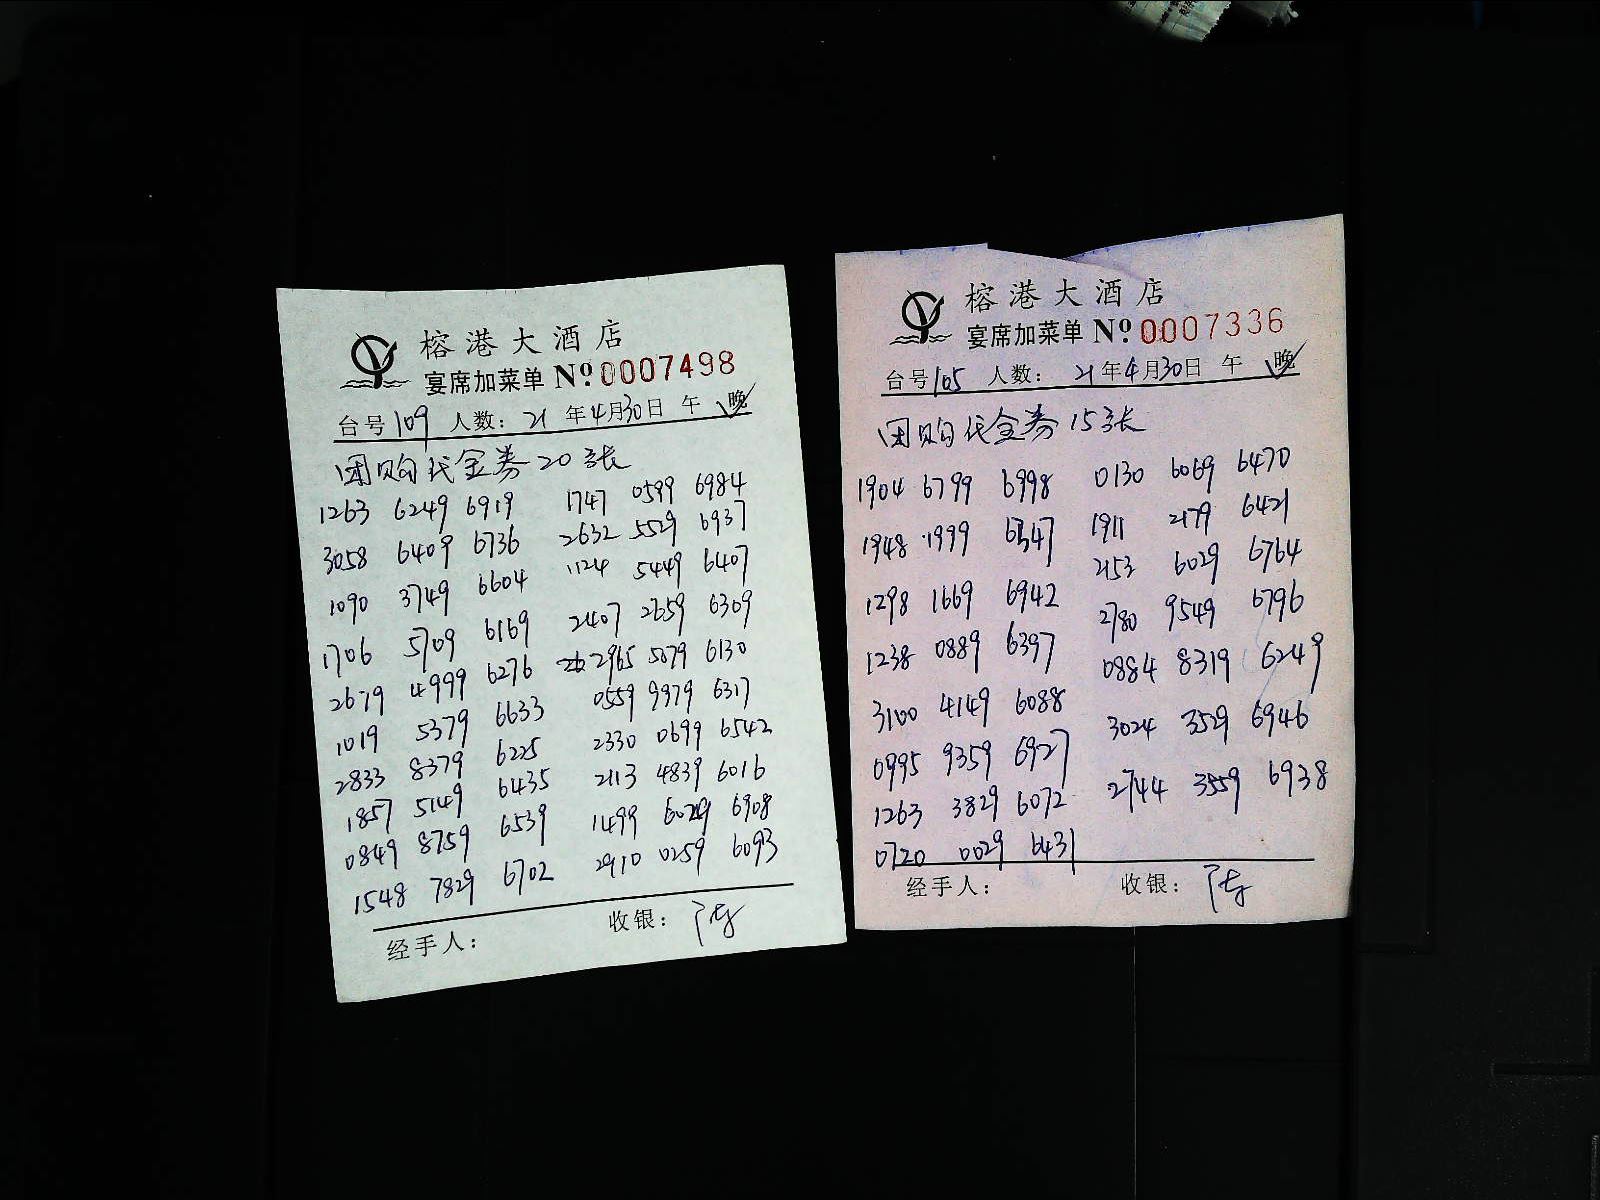 榕港大酒店
宴席加菜单 No 0007498
台号109 人数: 21年4月30日 午 晚
团购代金券20张
1263 6249 6919 1747 0599 6984
3058 6409 6736 2632 5529 6937
1090 3749 6604 1124 5449 6407
1706 5709 6169 2407 2659 6309
2679 4999 6276 2965 5079 6130
1019 5379 6633 0559 9979 6317
2833 8379 6225 2330 0699 6542
1857 5149 6435 2113 4839 6016
0849 8759 6539 1499 6029 6908
1548 7829 6702 2910 0259 6093
经手人: 收银: 陈
榕港大酒店
宴席加菜单 No 0007336
台号105 人数: 21年4月30日 午 晚
团购代金券15张
1904 6799 6998 0130 6069 6470
1948 1999 6347 1911 2179 6421
1298 1669 6942 2153 6029 6764
1238 0889 6397 2780 9549 6796
3100 4149 6088 0884 8319 6249
0995 9359 6927 3024 3529 6946
1263 3829 6072 2744 3559 6938
0720 0029 6431
经手人: 收银: 陈